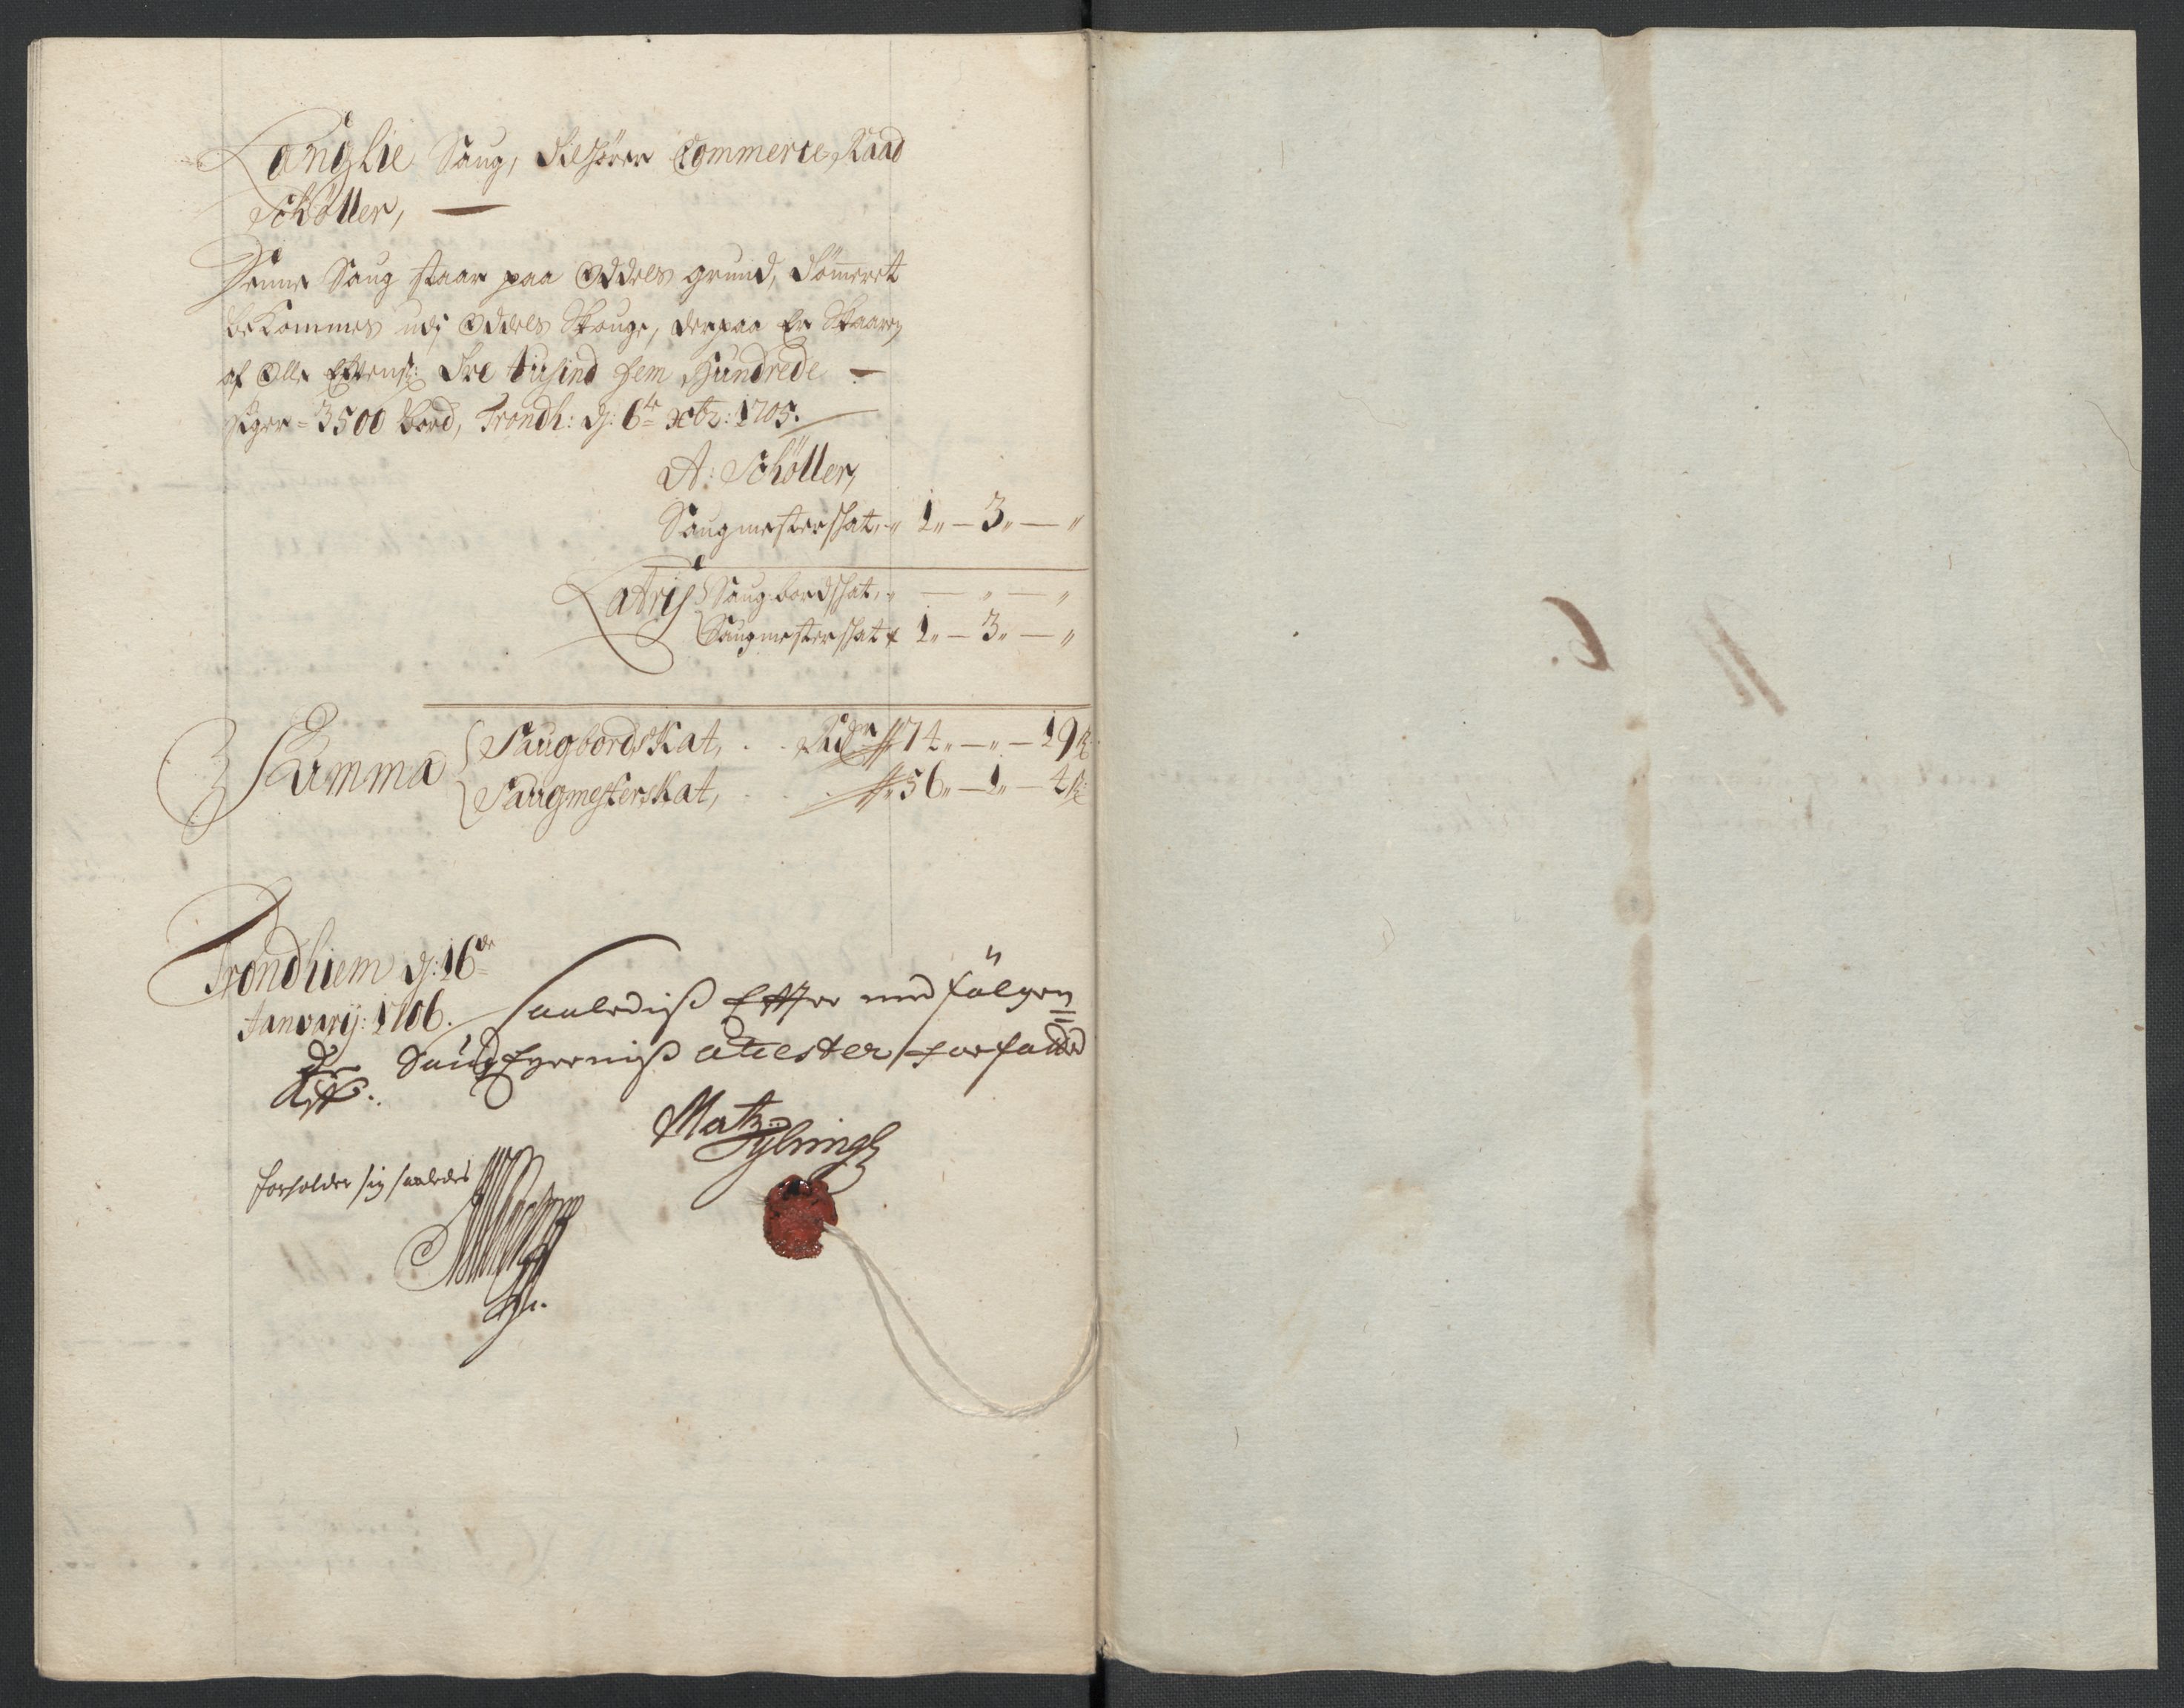 Langlie Saug, Tilhører Commerce Raad
Schøller, —
Denne Saug staar paa Oddels grund, Tømmeret
bekommes udj Oddels Skouge, derpaa Er Skaaren
af Olle Tre tusind fem Hundrede —
siger = 3500 Bord, Trondh: dj: 6te xbr: 1705.
A: Schøller,
Saugmesterskat, „ 1 „ — 3 „ — „
Latris Saugbordskat, „ — „ — „
Saugmesterskat 1 „ — 3 „ — „
Summa Saugbordskat, . . Rdr 74 „ — „ — 19 ß
Saugmesterskat, . . 56 „ — 1 „ — 4 ß
Trondhiem dj: 16de
Janvarij: 1706. Saaledis Efter med følgen=
de Saug Eyernis attester forfatted
Matz:
forholder sig saaledes